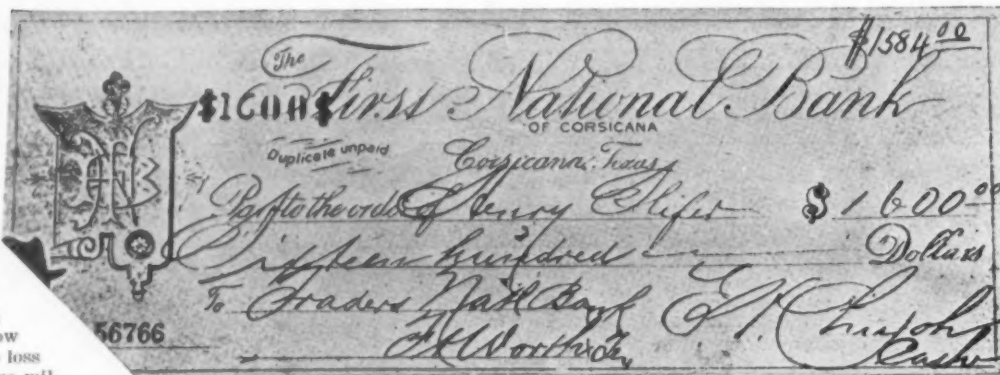 $1584 00
The
$1600$ First National Bank
OF CORSICANA
Duplicate unpaid
Corsicana, Texas
Pay to the order of Henry Slifer $1600 00
Sixteen hundred Dollars
To Traders Natl Bank
56766
Ft Worth Tex
Cashr
loss